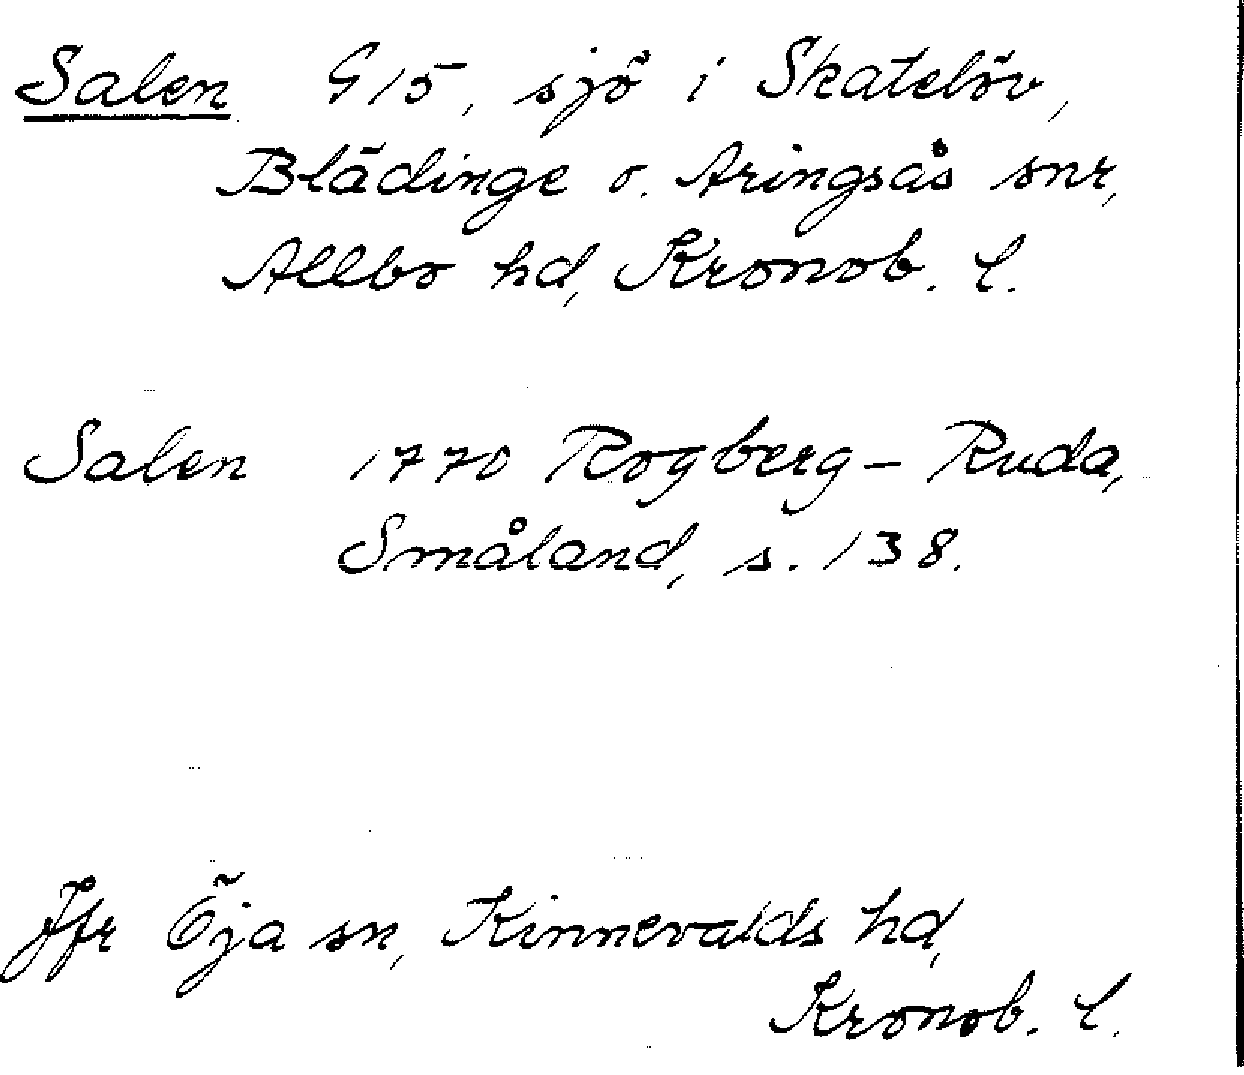 Salen G15, sjö i Skatelöv,
Blädinge o. Aringsås snr,
Allbo hd, Kronob. l.
Salen 1770 Rogberg-Ruda,
Småland, s. 138.
Jfr Öja sn, Kinnevalds hd,
Kronob. l.